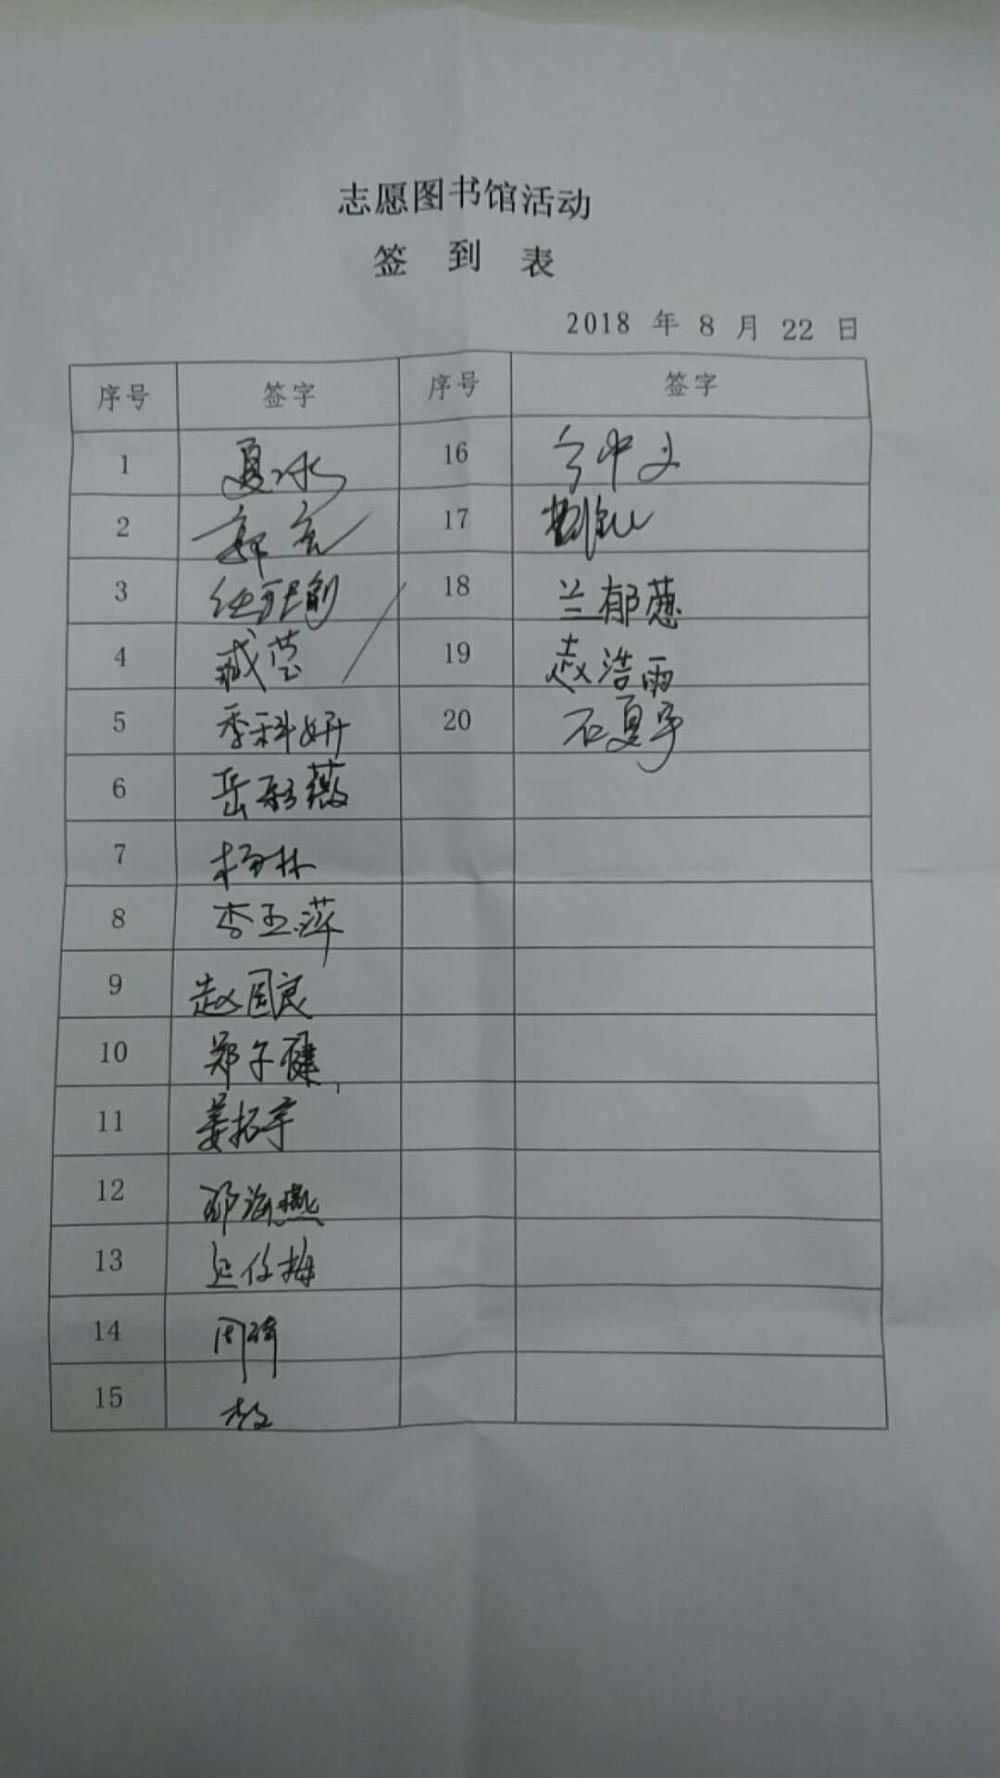 志愿图书馆活动
签 到 表
2018 年 8 月 22 日
序号 签字 序号 签字
1 夏冰 16
2 郭亮 17
3 18 兰郁葱
4 臧莹 19 赵浩雨
5 季科妍 20 石夏宇
6 岳彩薇
7 杨林
8 李玉萍
9 赵国良
10 郑子健
11 姜拓宇
12 邵海燕
13
14 周琦
15